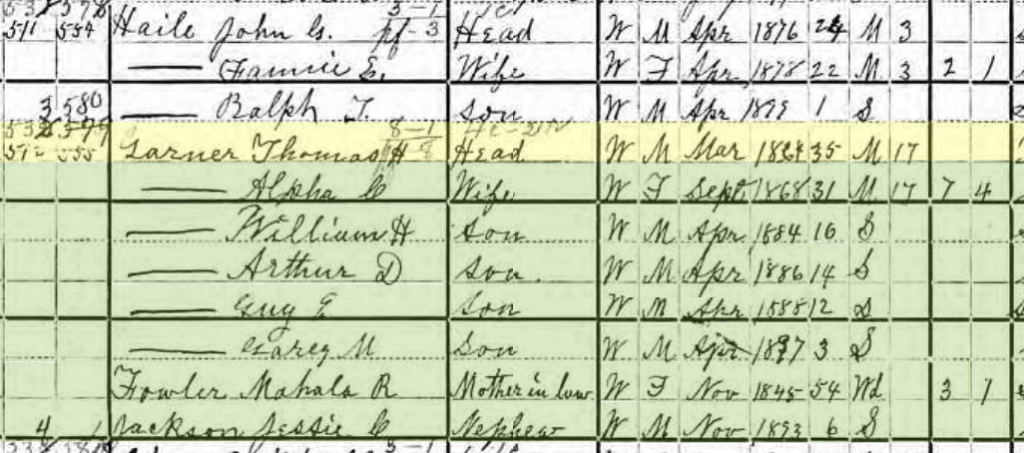 511 554 Haile John G. Head W M Apr 1876 24 M 3
—— Fannie E. Wife W F Apr 1878 22 M 3 2 1
3 580 —— Ralph T. Son W M Apr 1899 1 S
Garner Thomas H Head W M Mar 35 M 17
—— Alpha C Wife W F Sept 1868 31 M 17 7 4
—— William H Son W M Apr 1884 16 S
—— Arthur D Son. W M Apr 1886 14 S
—— Guy E Son W M Apr 1888 12 S
—— Carey M Son W M Apr 1897 3 S
Fowler Mahala R Mother in law W F Nov 1845 54 Wd 3 1
4 Jackson Jessie C Nephew W M Nov 1893 6 S